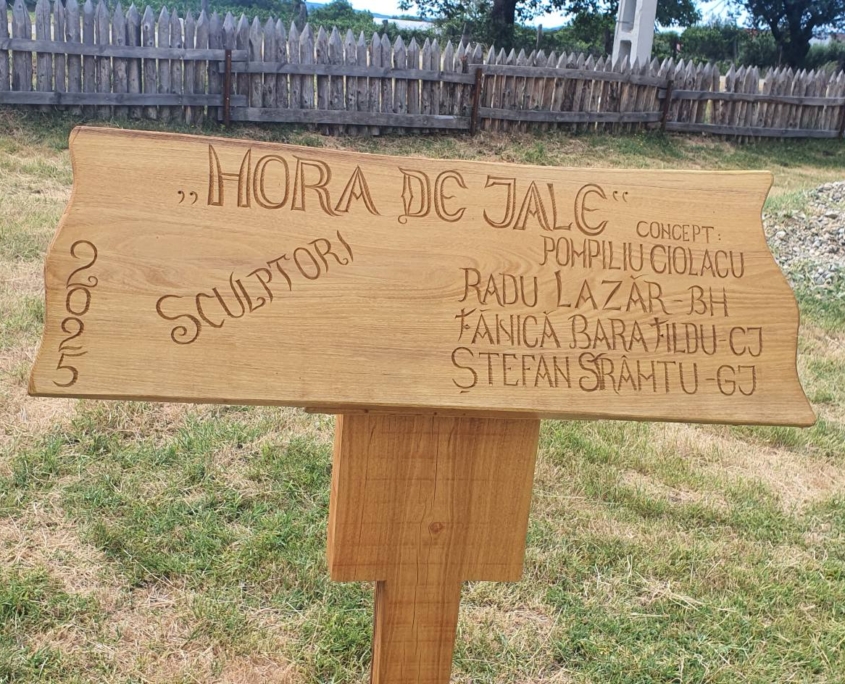 „HORA DE JALE“
CONCEPT:
POMPILIU CIOLACU
SCULPTORI
RADU LAZĂR-BH
FĂNICĂ BARA FILDU-CJ
ȘTEFAN
-GJ
2025